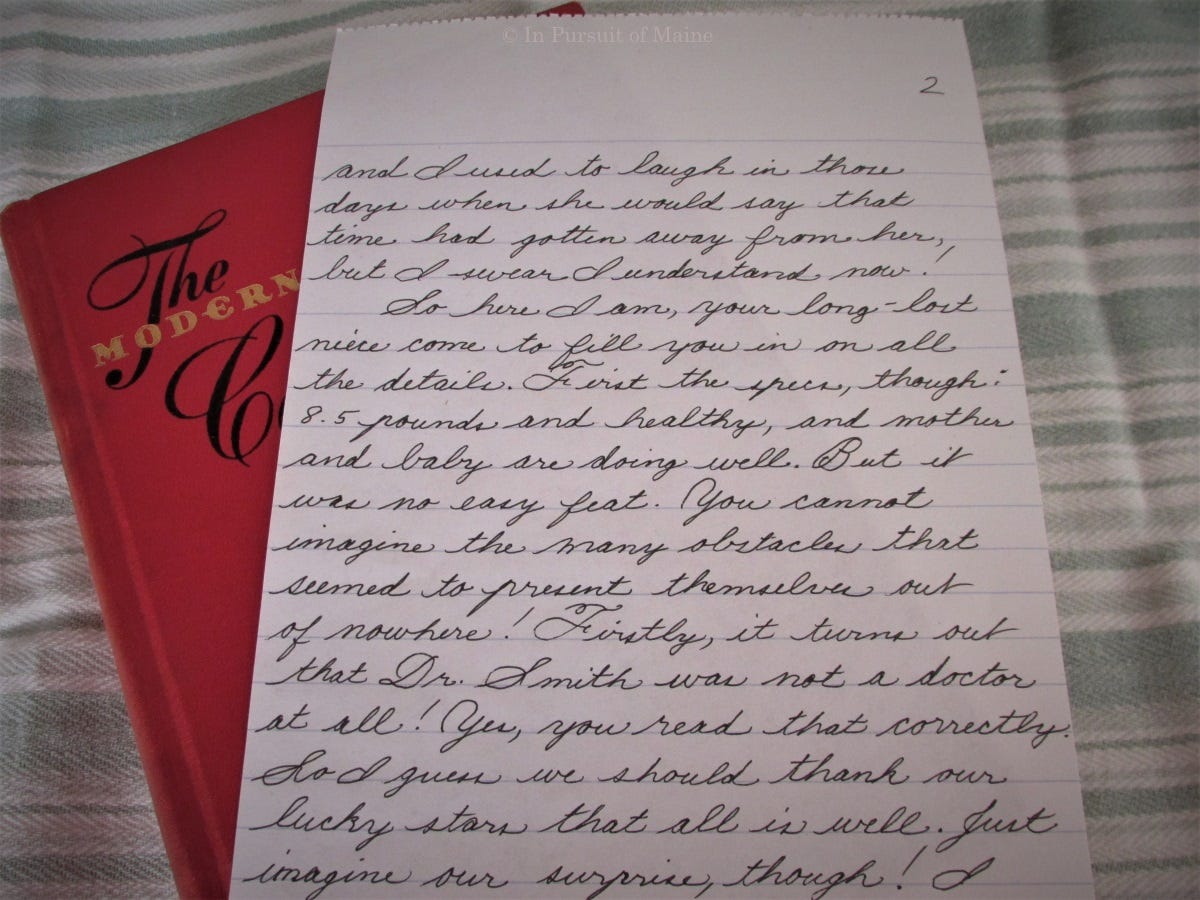 © In Pursuit of Maine
2
and I used to laugh in those
days when she would say that
time had gotten away from her,
but I swear I understand now!
So here I am, your long-lost
niece come to fill you in on all
the details. First the specs, though:
8.5 pounds and healthy, and mother
and baby are doing well. But it
was no easy feat. You cannot
imagine the many obstacles that
seemed to present themselves out
of nowhere! Firstly, it turns out
that Dr. Smith was not a doctor
at all! Yes, you read that correctly.
So I guess we should thank our
lucky stars that all is well. Just
imagine our surprise, though! I
The
MODERN